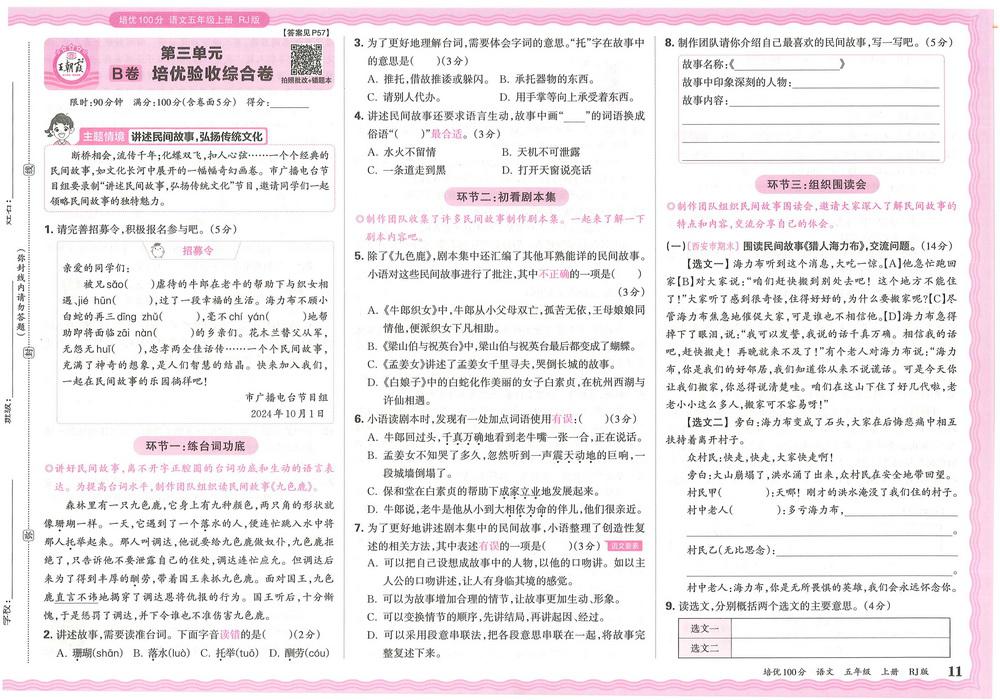 培优100分 语文五年级上册 RJ版
【答案见P57】
王朝霞
第三单元
B卷 培优验收综合卷
拍照批改+错题本
限时:90分钟 满分:100分(含卷面5分) 得分:
主题情境 讲述民间故事,弘扬传统文化
断桥相会,流传千年;化蝶双飞,扣人心弦……一个个经典的
民间故事,如文化长河中展开的一幅幅奇幻画卷。市广播电台节
目组要录制“讲述民间故事,弘扬传统文化”节目,邀请同学们一起
领略民间故事的独特魅力。
1. 请完善招募令,积极报名参与吧。(5分)
招募令
亲爱的同学们:
被兄sǎo( )虐待的牛郎在老牛的帮助下与织女相
遇、jié hūn( ),过了一段幸福的生活。海力布不顾小
白蛇的再三dīng zhǔ( ),毫不chí yán( )地帮
助即将面临zāi nàn( )的乡亲们。花木兰替父从军,
无怨无huǐ( ),忠孝两全佳话传……一个个民间故事,
充满了神奇的想象,是人们智慧的结晶。快来加入我们,
一起在民间故事的乐园徜徉吧!
市广播电台节目组
2024年10月1日
环节一:练台词功底
◎讲好民间故事,离不开字正腔圆的台词功底和生动的语言表
达。为提高台词水平,制作团队组织读民间故事《九色鹿》。
森林里有一只九色鹿,它身上有九种颜色,两只角的形状就
像珊瑚一样。一天,它遇到了一个落水的人,便连忙跳入水中将
那人托举起来。那人叫调达,他说要给九色鹿做奴仆,九色鹿拒
绝了,只告诉他不要泄露自己的住处,调达连忙点允。但调达后
来为了得到丰厚的酬劳,带着国王来抓九色鹿。面对国王,九色
鹿直言不讳地揭穿了调达恩将仇报的行为。国王听后,十分惭
愧,于是惩罚了调达,并下令谁也不准伤害九色鹿。
2. 讲述故事,需要读准台词。下面字音读错的是( )(2分)
A. 珊瑚(shān) B. 落水(luò) C. 托举(tuō) D. 酬劳(cóu)
3. 为了更好地理解台词,需要体会字词的意思。“托”字在故事中
的意思是( )(3分)
A. 推托,借故推诿或躲闪。 B. 承托器物的东西。
C. 请别人代办。 D. 用手掌等向上承受着东西。
4. 讲述民间故事还要求语言生动,故事中画“____”的词语换成
俗语“( )”最合适。(3分)
A. 水火不留情 B. 天机不可泄露
C. 一条道走到黑 D. 打开天窗说亮话
环节二:初看剧本集
◎制作团队收集了许多民间故事制作剧本集。一起来了解一下
剧本内容吧。
5. 除了《九色鹿》,剧本集中还汇编了其他耳熟能详的民间故事。
小语对这些民间故事进行了批注,其中不正确的一项是( )
(3分)
A.《牛郎织女》中,牛郎从小父母双亡,孤苦无依,王母娘娘同
情他,便派织女下凡相助。
B.《梁山伯与祝英台》中,梁山伯与祝英台最后都变成了蝴蝶。
C.《孟姜女》讲述了孟姜女千里寻夫,哭倒长城的故事。
D.《白娘子》中的白蛇化作美丽的女子白素贞,在杭州西湖与
许仙相遇。
6. 小语读剧本时,发现有一处加点词语使用有误:( )(3分)
A. 牛郎回过头,千真万确地看到老牛嘴一张一合,正在说话。
B. 孟姜女不知哭了多久,忽然听到一声震天动地的巨响,一
段城墙倒塌了。
C. 保和堂在白素贞的帮助下成家立业地发展起来。
D. 牛郎说,老牛是他从小到大相依为命的伴儿,他们很亲近。
7. 为了更好地讲述剧本集中的民间故事,小语整理了创造性复
述的相关方法,其中表述有误的一项是( )(3分) 语文要素
A. 可以把自己设想成故事中的人物,以他的口吻讲。如以主
人公的口吻讲述,让人有身临其境的感觉。
B. 可以为故事增加合理的情节,让故事更加生动、形象。
C. 可以变换情节的顺序,先讲结局,再讲起因、经过。
D. 可以采用段意串联法,把各段意思串联在一起,将故事完
整复述下来。
8. 制作团队请你介绍自己最喜欢的民间故事,写一写吧。(5分)
故事名称:《 》
故事中印象深刻的人物:
故事内容:
环节三:组织围读会
◎制作团队组织民间故事围读会,邀请大家深入了解民间故事的
特点和内容,交流分享自己的体会。
(一)[西安市期末] 围读民间故事《猎人海力布》,交流问题。(14分)
【选文一】海力布听到这个消息,大吃一惊。【A】他急忙跑回
家【B】对大家说:“咱们赶快搬到别处去吧!这个地方不能住
了!”大家听了感到很奇怪,住得好好的,为什么要搬家呢?【C】尽
管海力布焦急地催促大家,可是谁也不相信他。【D】海力布急得
掉下了眼泪,说:“我可以发誓,我说的话千真万确。相信我的话
吧,赶快搬走!再晚就来不及了!”有个老人对海力布说:“海力
布,你是我们的好邻居,我们知道你从来不说谎话。可是今天你
让我们搬家,你总得说清楚哇。咱们在这山下住了好几代啦,老
老小小这么多人,搬家可不容易呀!”
【选文二】旁白:海力布变成了石头,大家在后悔悲痛中相互
扶持着离开村子。
众村民:快走,快走,大家快走啊!
旁白:大山崩塌了,洪水涌了出来,众村民在安全地带回望。
村民甲( ):天哪!刚才的洪水淹没了我们住的村子。
村中老人( ):多亏海力布,
。
村民乙(无比思念):
。
村中老人:海力布,你是无所畏惧的英雄,我们会永远怀念你。
9. 读选文,分别概括两个选文的主要意思。(4分)
选文一
选文二
培优100分 语文 五年级 上册 RJ版 11
姓名:
班级:
学校:
(弥封线内请勿答题)
密
封
线